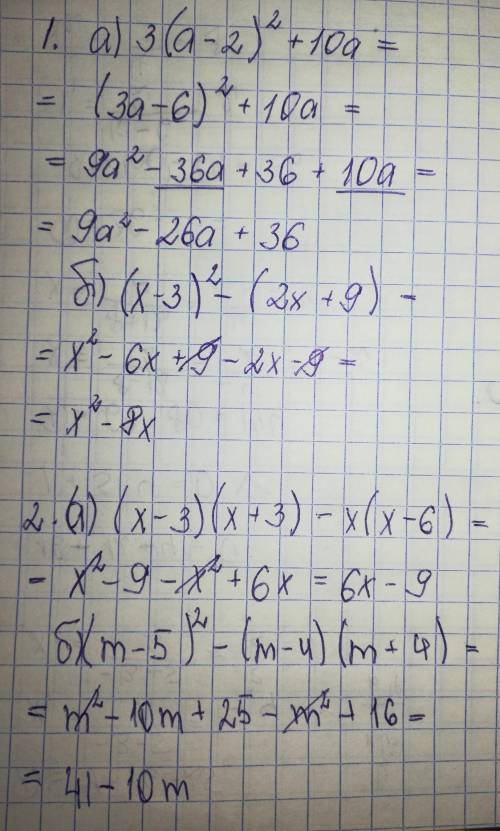 1. а) 3(a-2)² + 10a =
= (3a-6)² + 10a =
= 9a² - 36a + 36 + 10a =
= 9a² - 26a + 36
б) (x-3)² - (2x+9) -
= x² - 6x + 9 - 2x - 9 =
= x² - 8x
2. а) (x-3)(x+3) - x(x-6) =
- x² - 9 - x² + 6x = 6x - 9
б) (m-5)² - (m-4)(m+4) =
= m² - 10m + 25 - m² + 16 =
= 41 - 10m